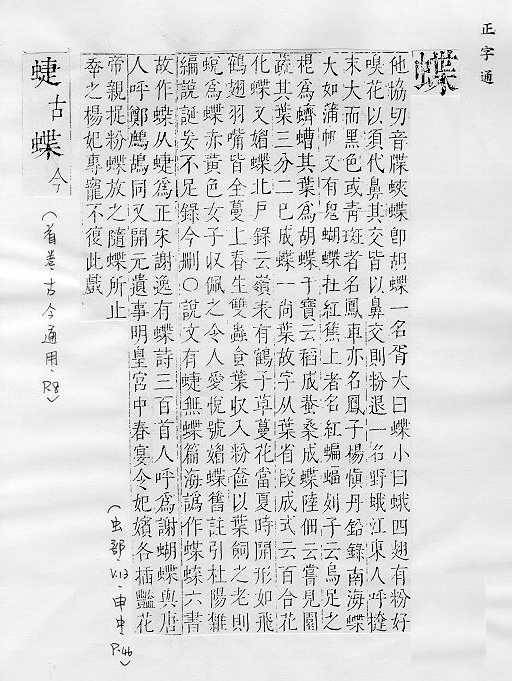 正字通
蝶
他協切音牒蛺蝶卽胡蝶一名胥大曰蝶小曰蛾四翅有粉好
嗅花以須代鼻其交皆以鼻交則粉退一名野蛾江東人呼㨗
末大而黑色或青斑者名鳳車亦名鳳子楊愼丹鉛錄南海蝶
大如蒲帆又有鬼蝴蝶杜紅蕉上者名紅蝙蝠列子云烏足之
根爲蠐螬其葉爲胡蝶干寶云稻成蛬桑成蝶陸佃云嘗見園
蔬其葉三分二巳成蝶一尚葉故字从葉省段成式云百合花
化蝶又媚蝶北戶錄云嶺表有鶴子草蔓花當夏時開形如飛
鶴翅羽嘴皆全蔓上春生雙蟲食葉收入粉奩以葉飼之老則
蛻爲蝶赤黃色女子收佩之令人愛悅號媚蝶舊註引杜陽雜
編說誕妄不足錄今刪○說文有蜨無蝶篇海譌作蝶蝶六書
故作蝶从蜨爲正宋謝逸有蝶詩三百首人呼爲謝蝴蝶與唐
人呼鄭鷓鴣同又開元遺事明皇宮中春宴令妃嬪各插豔花
帝親捉粉蝶放之隨蝶所止
幸之楊妃專寵不復此戲
(虫部.V.13.申中P.46)
蜨古蝶今
(首卷古今通用.P.8)